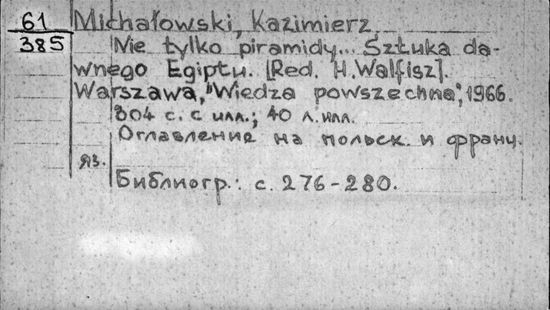 61 Michałowski, Kazimierz
385 Nie tylko piramidy... Sztuka da-
wnego Egiptu. [Red. H. Walfisz].
Warszawa, "Wiedza powszechna", 1966.
304 с. с илл.; 40 л. илл.
Оглавление на польск. и франц.
яз.
Библиогр.: с. 276-280.